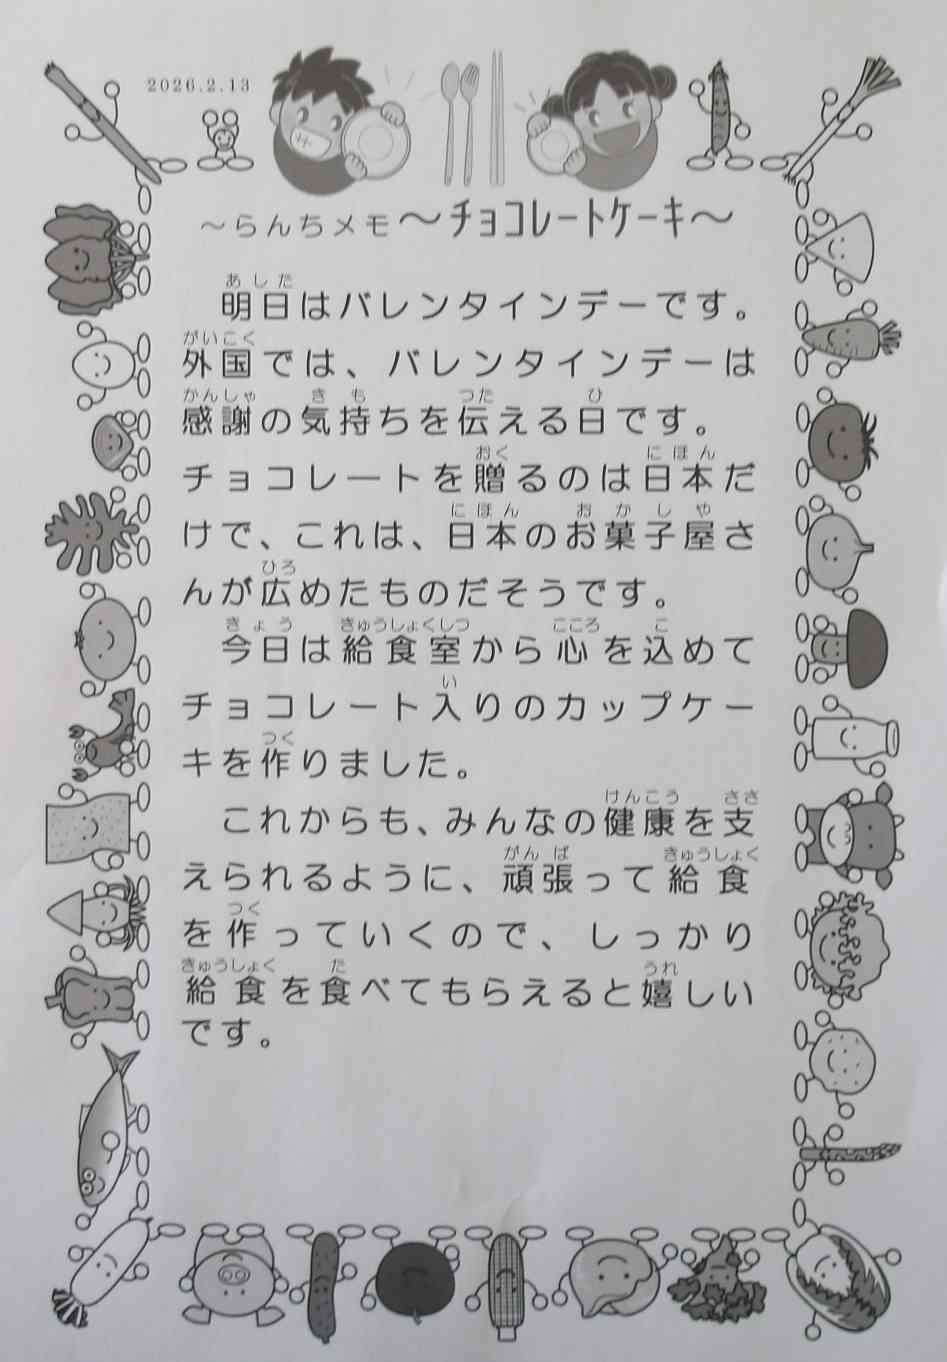 2026.2.13
～らんちメモ～チョコレートケーキ～
明日はバレンタインデーです。
外国では、バレンタインデーは
感謝の気持ちを伝える日です。
チョコレートを贈るのは日本だ
けで、これは、日本のお菓子屋さ
んが広めたものだそうです。
今日は給食室から心を込めて
チョコレート入りのカップケー
キを作りました。
これからも、みんなの健康を支
えられるように、頑張って給食
を作っていくので、しっかり
給食を食べてもらえると嬉しい
です。